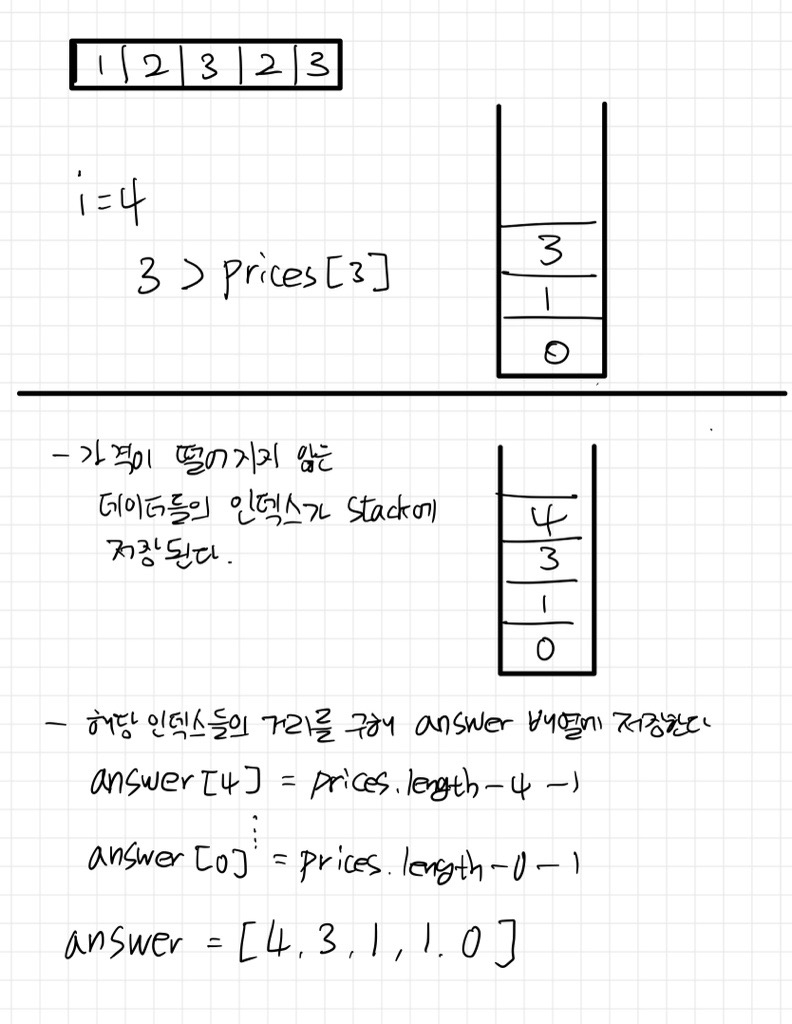 1 | 2 | 3 | 2 | 3
i=4
3 > prices[3]
3
1
0
- 가격이 떨어지지 않는
데이터들의 인덱스가 stack에
저장된다.
4
3
1
0
- 해당 인덱스들의 거리를 구해 answer 배열에 저장한다
answer[4] = prices.length-4-1
⋮
answer[0] = prices.length-0-1
answer = [4, 3, 1, 1. 0]